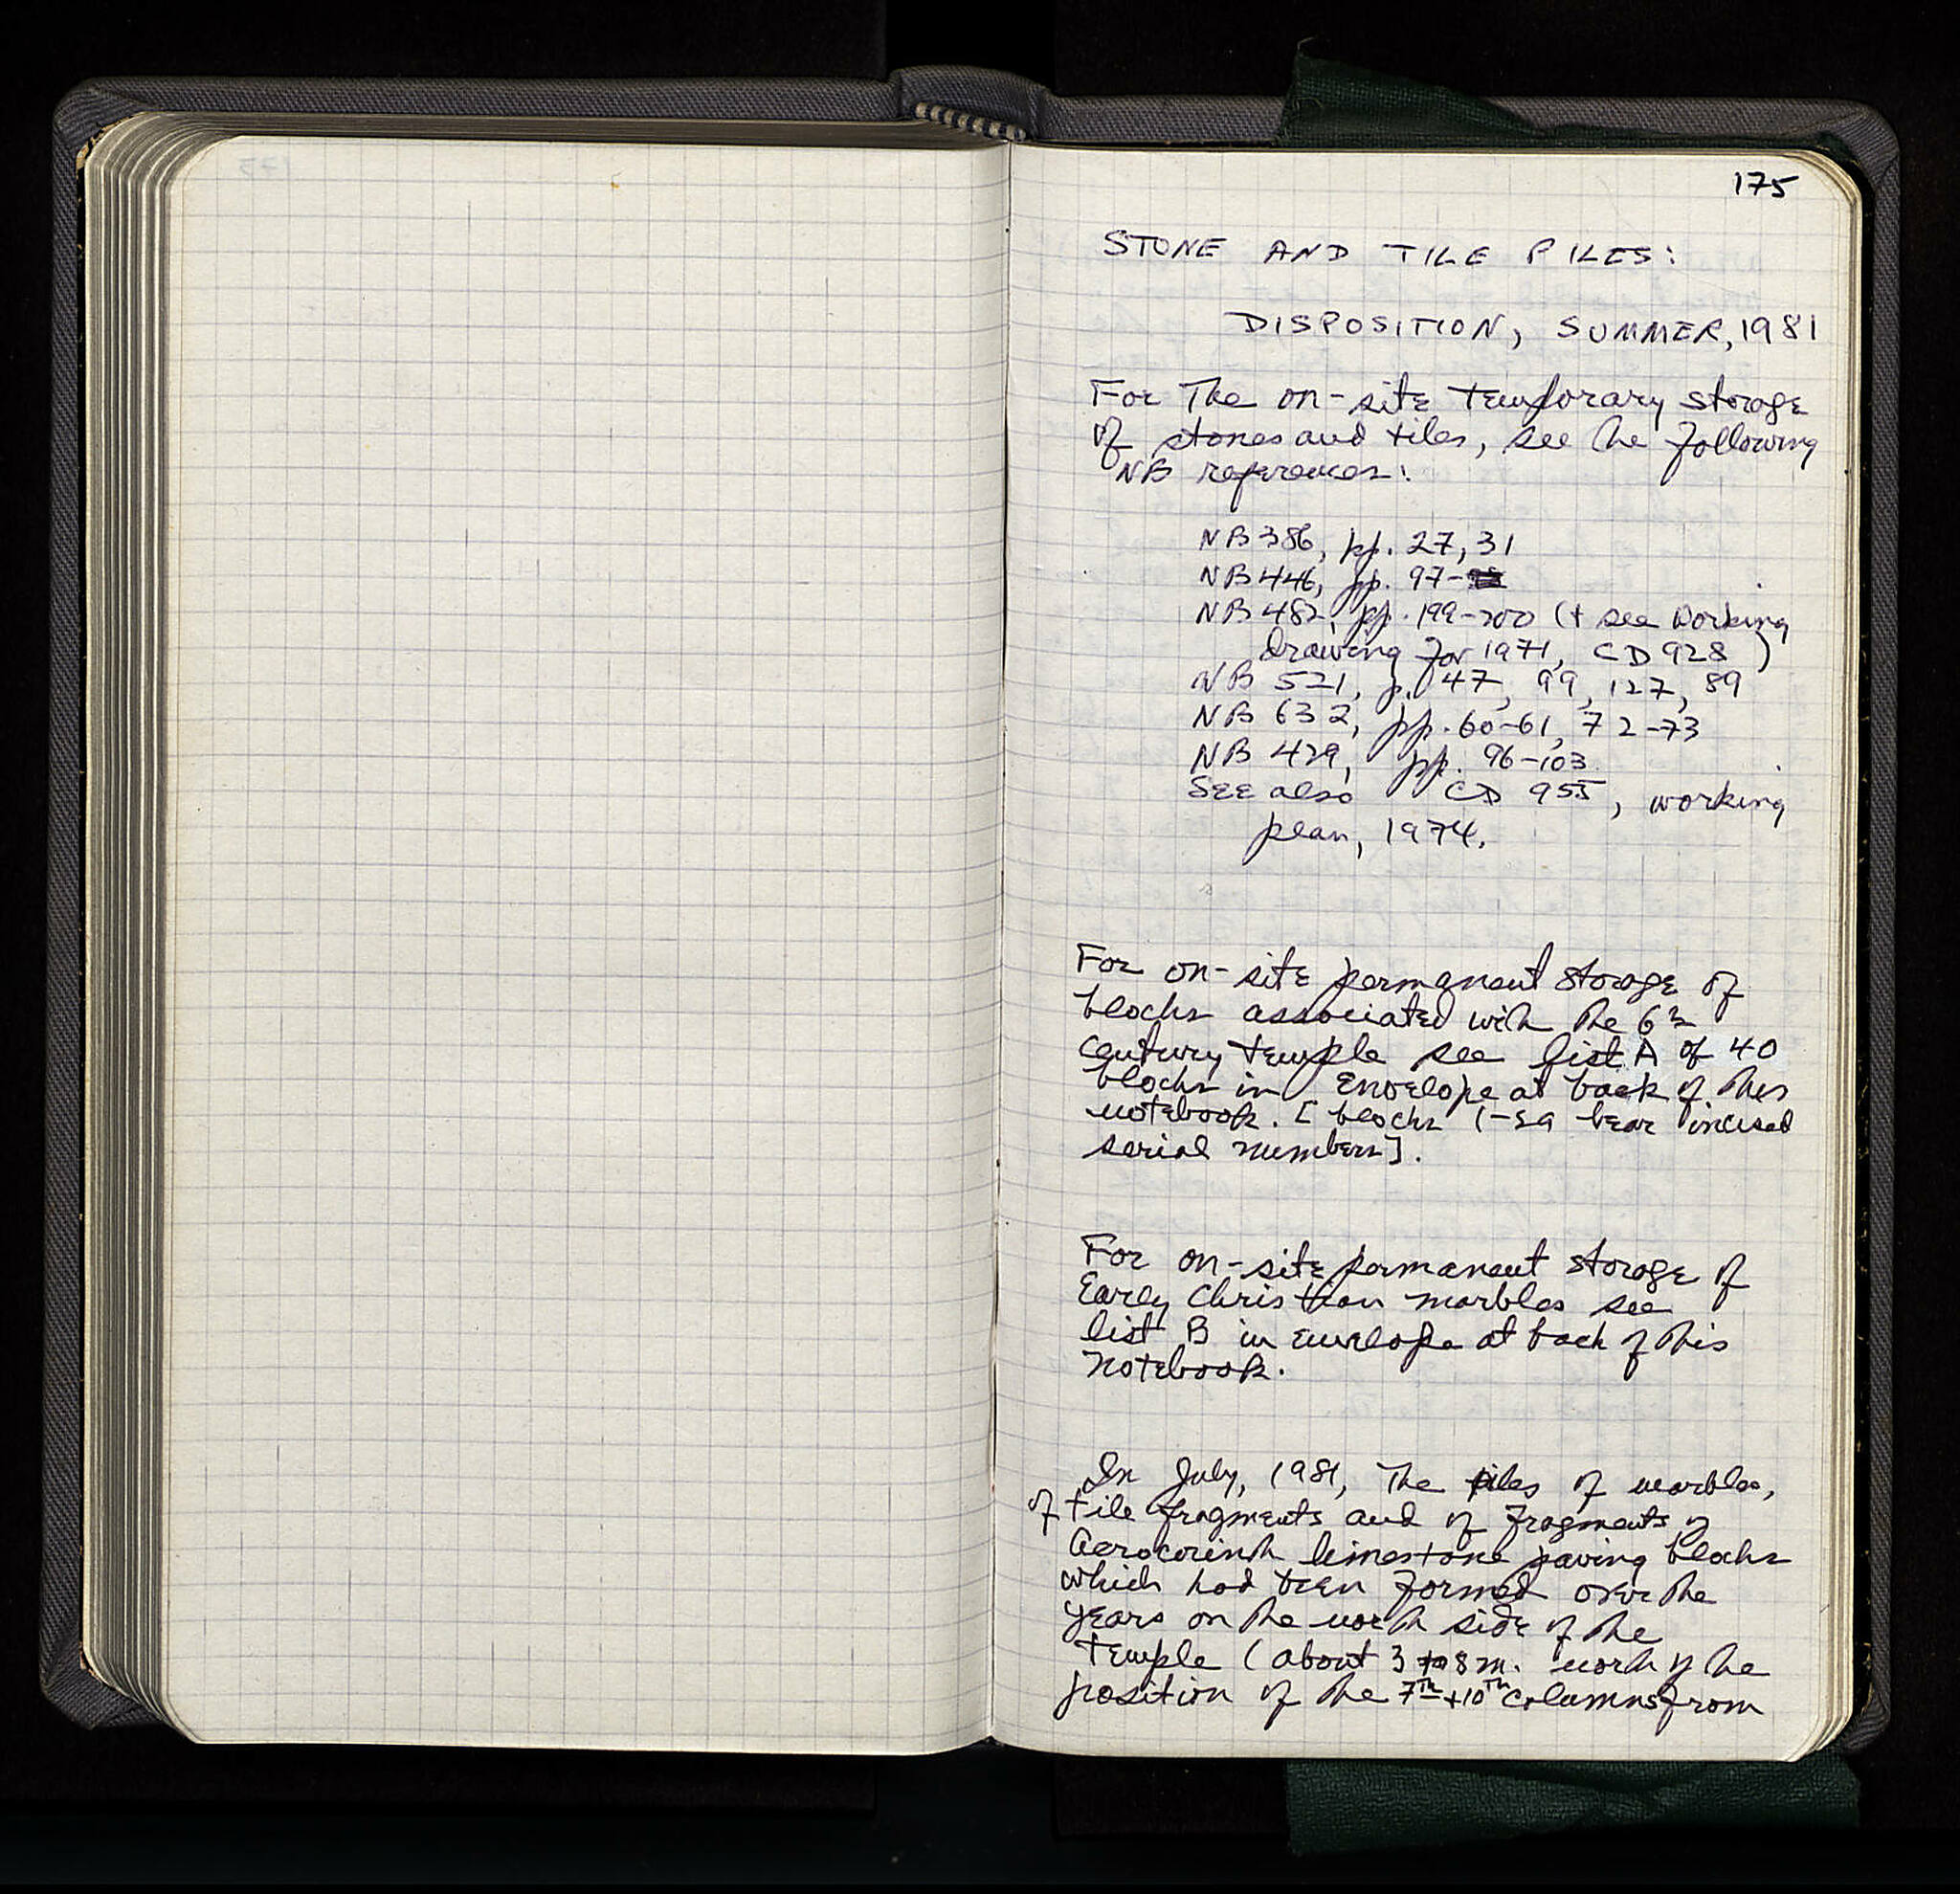 175
STONE AND TILE PILES:
DISPOSITION, SUMMER, 1981
For The on-site temporary storage
of stones and tiles, see the following
NB references:
NB 386, pp. 27, 31
NB 446, pp. 97-
NB 482, pp. 199-200 (+ see working
drawing for 1971, CD 928)
NB 521, p. 47, 99, 127, 89
NB 632, pp. 60-61, 72-73
NB 429, pp. 96-103
See also CD 955, working
plan, 1974.
For on-site permanent storage of
blocks associated with the 6th
century temple see list A of 40
blocks in Envelope at back of this
notebook. [blocks 1-39 bear incised
serial numbers].
For on-site permanent storage of
Early Christian marbles see
list B in envelope at back of this
notebook.
In July, 1981, The piles of marbles,
of tile fragments and of fragments of
Acrocorinth limestone paving blocks
which had been formed over the
years on the north side of the
Temple (about 3 to 8 m. north of the
position of the 7th + 10th columns from